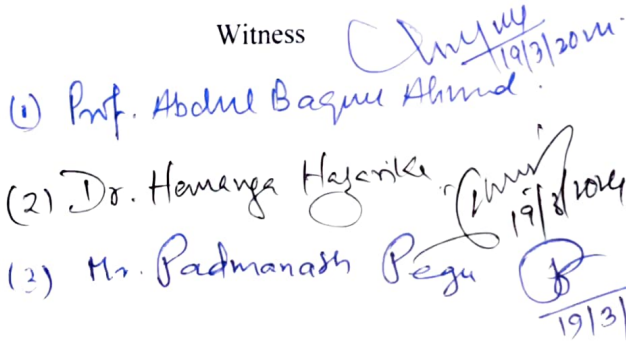 Witness
19/3/2024
(1) Prof. Abdul Baquee Ahmed.
(2) Dr. Hemanga Hazarika
19/3/2024
(3) Mr. Padmanash Pegu
19/3/